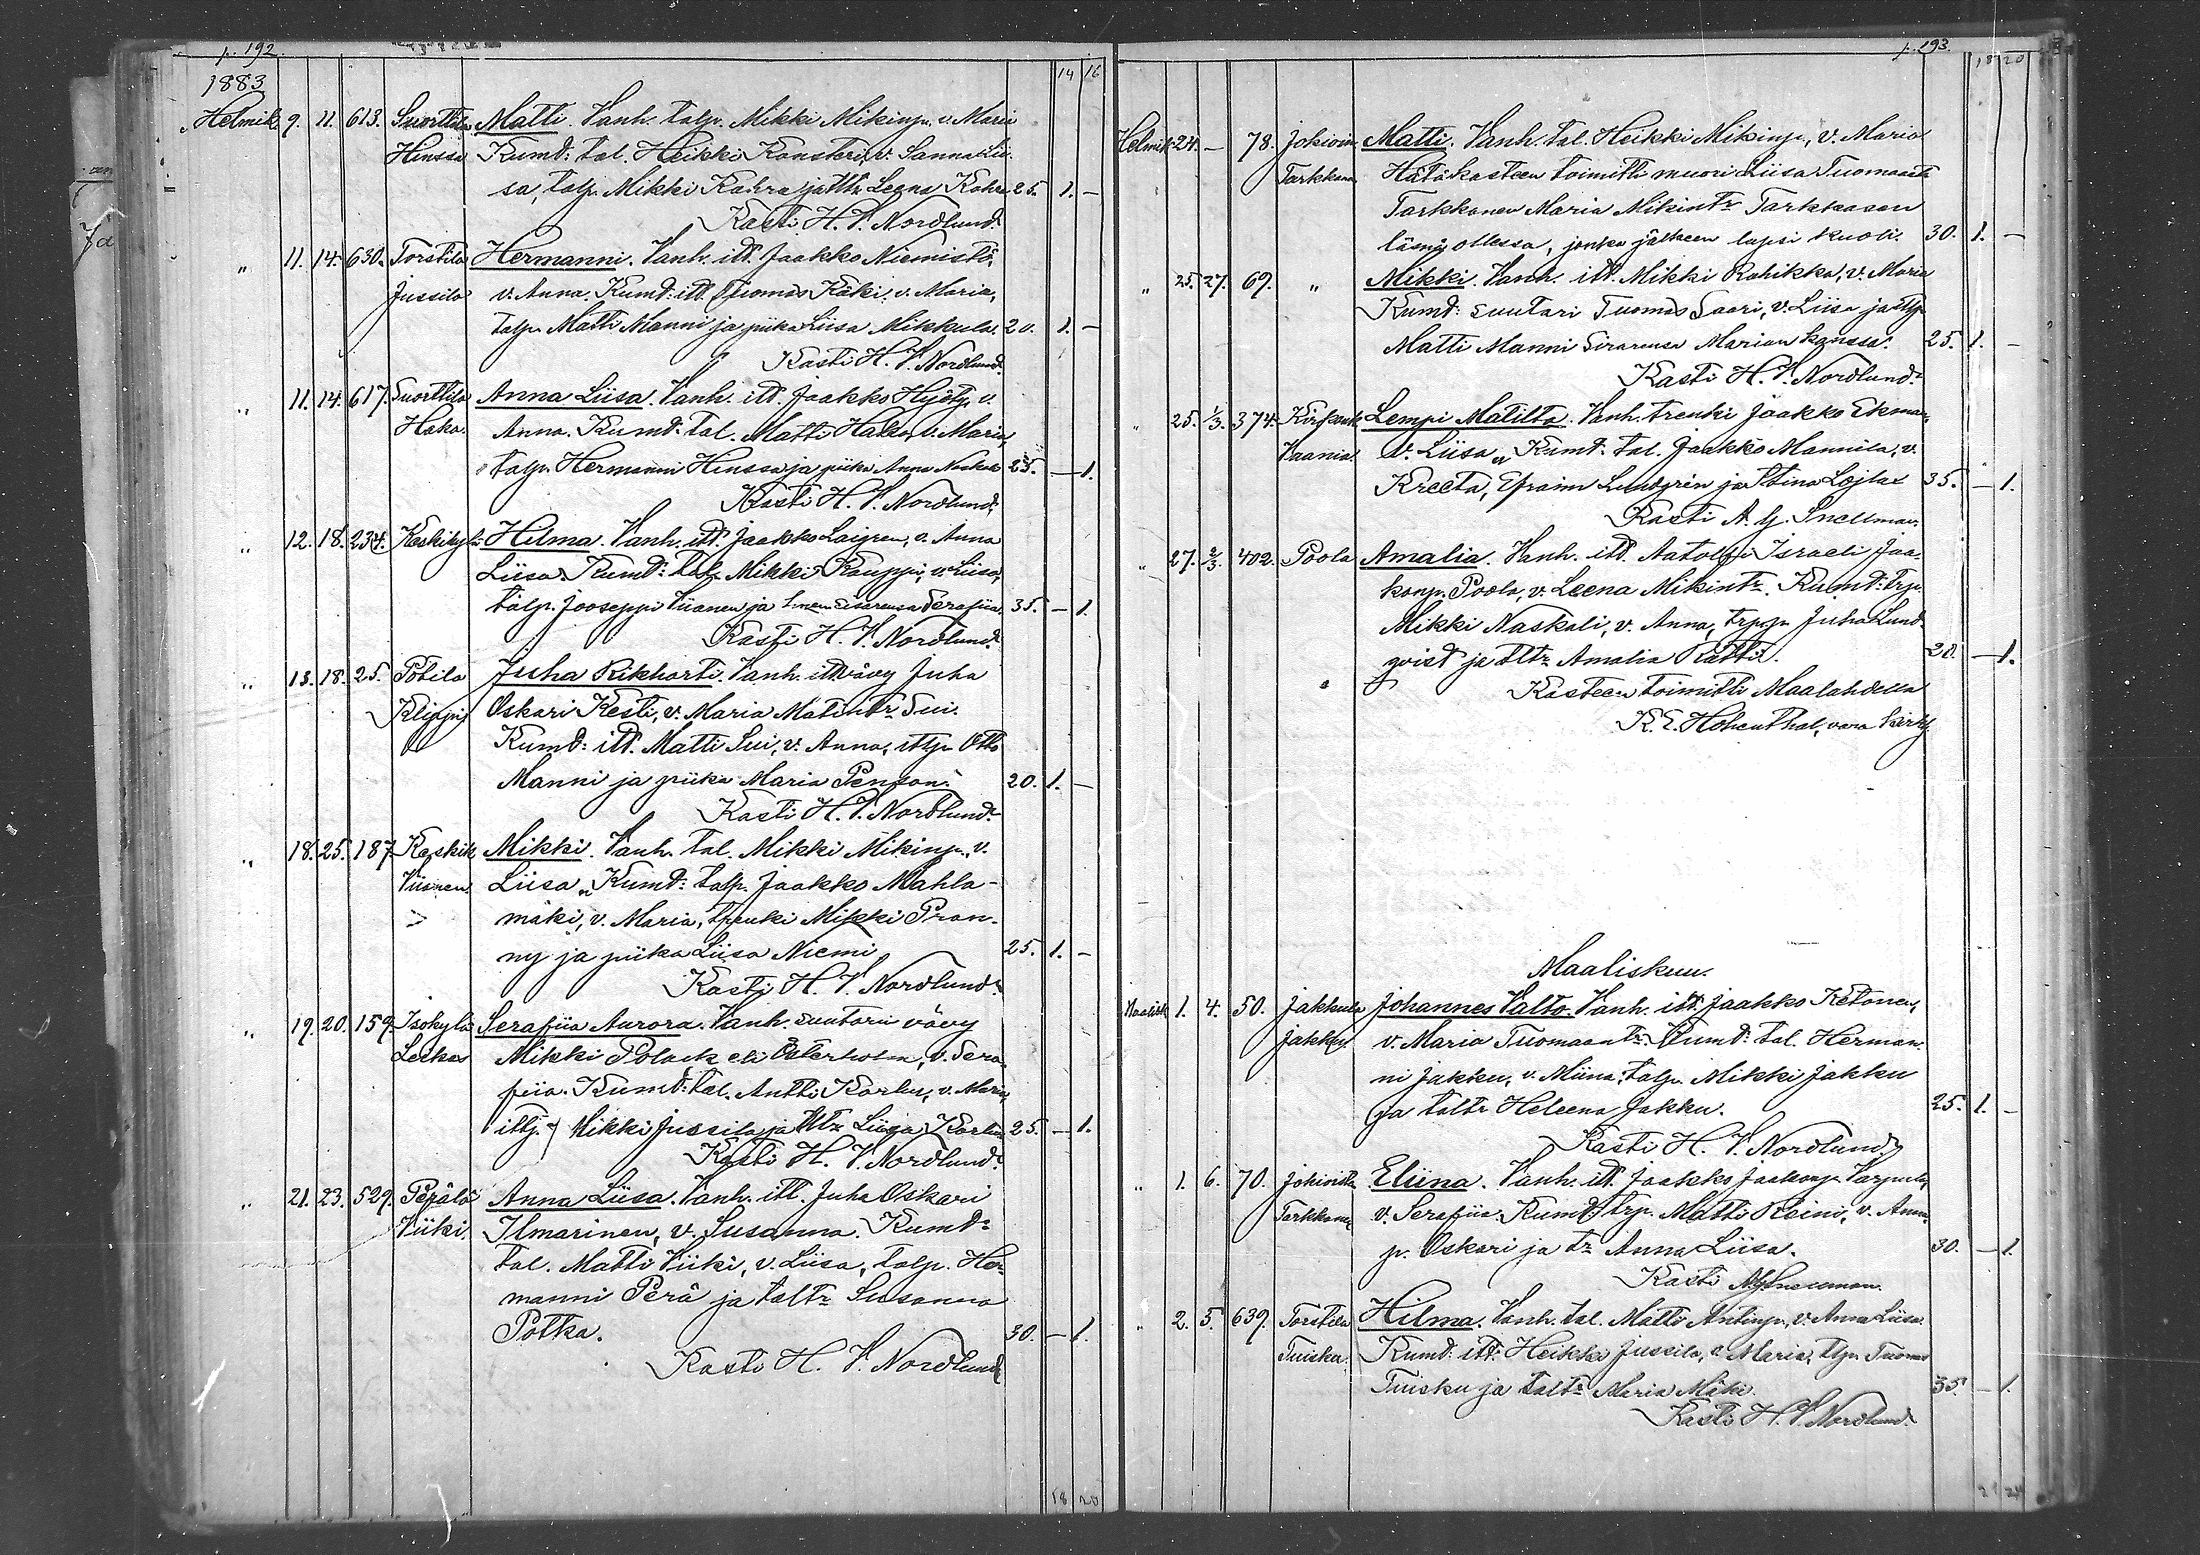 p. 192.
14 16
1883
Helmik. 9. 11. 613. Suorttila Matti. Vanh. talp. Mikki Mikinp. v. Maria
Hinssa Kumd: tal. Heikki Konsteri, v. Sanna Lii-
sa, talp. Mikki Kahra ja tltr Leena Kahra 25. 1. —
Kasti H. V. Nordlund.
" 11. 14. 630. Torstila Hermanni. Vanh. itl. Jaakko Niemistö,
Jussila v. Anna. Kumd: itl. Tuomas Käki, v. Maria,
talp. Matti Manni ja piika Liisa Mikkula. 20. 1. —
Kasti H. V. Nordlund.
" 11. 14. 617. Suorttila Anna Liisa. Vanh. itl. Jaakko v.
Hako. Anna. Kumd: tal. Matti Hakko, v. Maria,
talp. Hermanni Hinssa ja piika Anna 25. — 1.
Kasti H. V. Nordlund.
" 12. 18. 234. Keskikylä Hilma. Vanh. itl. Jaakko Laigren, v. Anna
Liisa. Kumd: Mikki Kauppi, v. Liisa,
talp. Jooseppi Viianen ja sisarensa Serafiia. 35. — 1.
Kasti H. V. Nordlund.
" 13. 18. 25. Pötilä Juha Rikharti. Vanh. itl vävy Juha
Klippi Oskari Kesti, v. Maria Matintr Sui.
Kumd: itl. Matti Sui, v. Anna, itlp. Otto
Manni ja piika Maria Penson. 20. 1. —
Kasti H. V. Nordlund.
" 18. 25. 187. Keskik Mikki. Vanh. tal. Mikki Mikinp. v.
Viianen Liisa. Kumd: talp. Jaakko Mahla-
mäki, v. Maria, trenki Mikki Pran-
ny ja piika Liisa Niemi 25. 1. —
Kasti H. V. Nordlund.
" 19. 20. 159. Isokylä Serafiia Aurora. Vanh. suutarin vävy
Leskas Mikki Polack eli Österholm, v. Sera-
fiia. Kumd: tal. Antti Karlu, v. Maria,
itlj. Mikki Jussila ja tltr Liisa Karlu 25. — 1.
Kasti H. V. Nordlund.
" 21. 23. 529. Perälä Anna Liisa. Vanh. itl. Juha Oskari
Viiki. Ilmarinen, v. Susanna. Kumd:
tal. Matti Viiki, v. Liisa, talp. Her-
manni Perä ja taltr Susanna
Potka. 30. — 1.
Kasti H. V. Nordlund
18 20
p. 193.
18 20
Helmik. 24. — 78. Jokivin Matti. Vanh. tal. Heikki Mikinp., v. Maria
Tarkkanen Hätäkasteen toimitti muori Liisa Tuomaantr
Tarkkanen Maria Mikintr Tarkkasen
läsnä ollessa, jonka jälkeen lapsi kuoli. 30. 1. —
" 25. 27. 69. " Mikki. Vanh. itl. Mikki Rahikka, v. Maria
Kumd: suutari Tuomas Saari, v. Liisa ja itlp
Matti Manni sisarensa Marian kanssa. 25. 1. —
Kasti H. V. Nordlund.
" 25. 1/3. 374. Kirkonk. Lempi Matilta. Vanh. trenki Jaakko Ekman,
Vaania. v. Liisa. Kumd: tal. Jaakko Mannila, v.
Kreeta, Efraim Lundgrén ja Stina Löjlax 35. — 1.
Kasti A. G. Snellman.
" 27. 2/3. 402. Poola Amalia. Vanh. itl. Aatolfi Israeli Jaa-
konp. Poola, v. Leena Mikintr. Kumd: trp.
Mikki Naskali, v. Anna, trpp. Juha Lund-
qvist ja tltr Amalia Rätti. 20. — 1.
Kasteen toimitti Maalahdella
K. E. Hohenthal, vara kirkh.
Maaliskuu.
Maalisk 1. 4. 50. Jakkula Johannes Valto. Vanh. itl. Jaakko Ketonen,
Jakku. v. Maria Tuomaantr. Kumd: tal. Herman-
ni Jakku, v. Miina, talp. Mikki Jakku
ja taltr Heleena Jakku. 25. 1. —
Kasti H. V. Nordlund.
" 1. 6. 70. Jokivin Eliina. Vanh. itl. Jaakko Jaakonp. Varpula,
Tarkkanen v. Serafiia. Kumd: trp. Matti Reini, v. Anna,
p. Oskari ja tr Anna Liisa. 30. — 1.
Kasti A. G. Snellman.
" 2. 5. 639. Torstila Hilma. Vanh. tal. Matti Antinp., v. Anna Liisa.
Tuisku. Kumd: itl. Heikki Jussila, v. Maria, tlp. Tuomas
Tuisku ja taltr Maria Mäki. 35. — 1.
Kasti H. V. Nordlund.